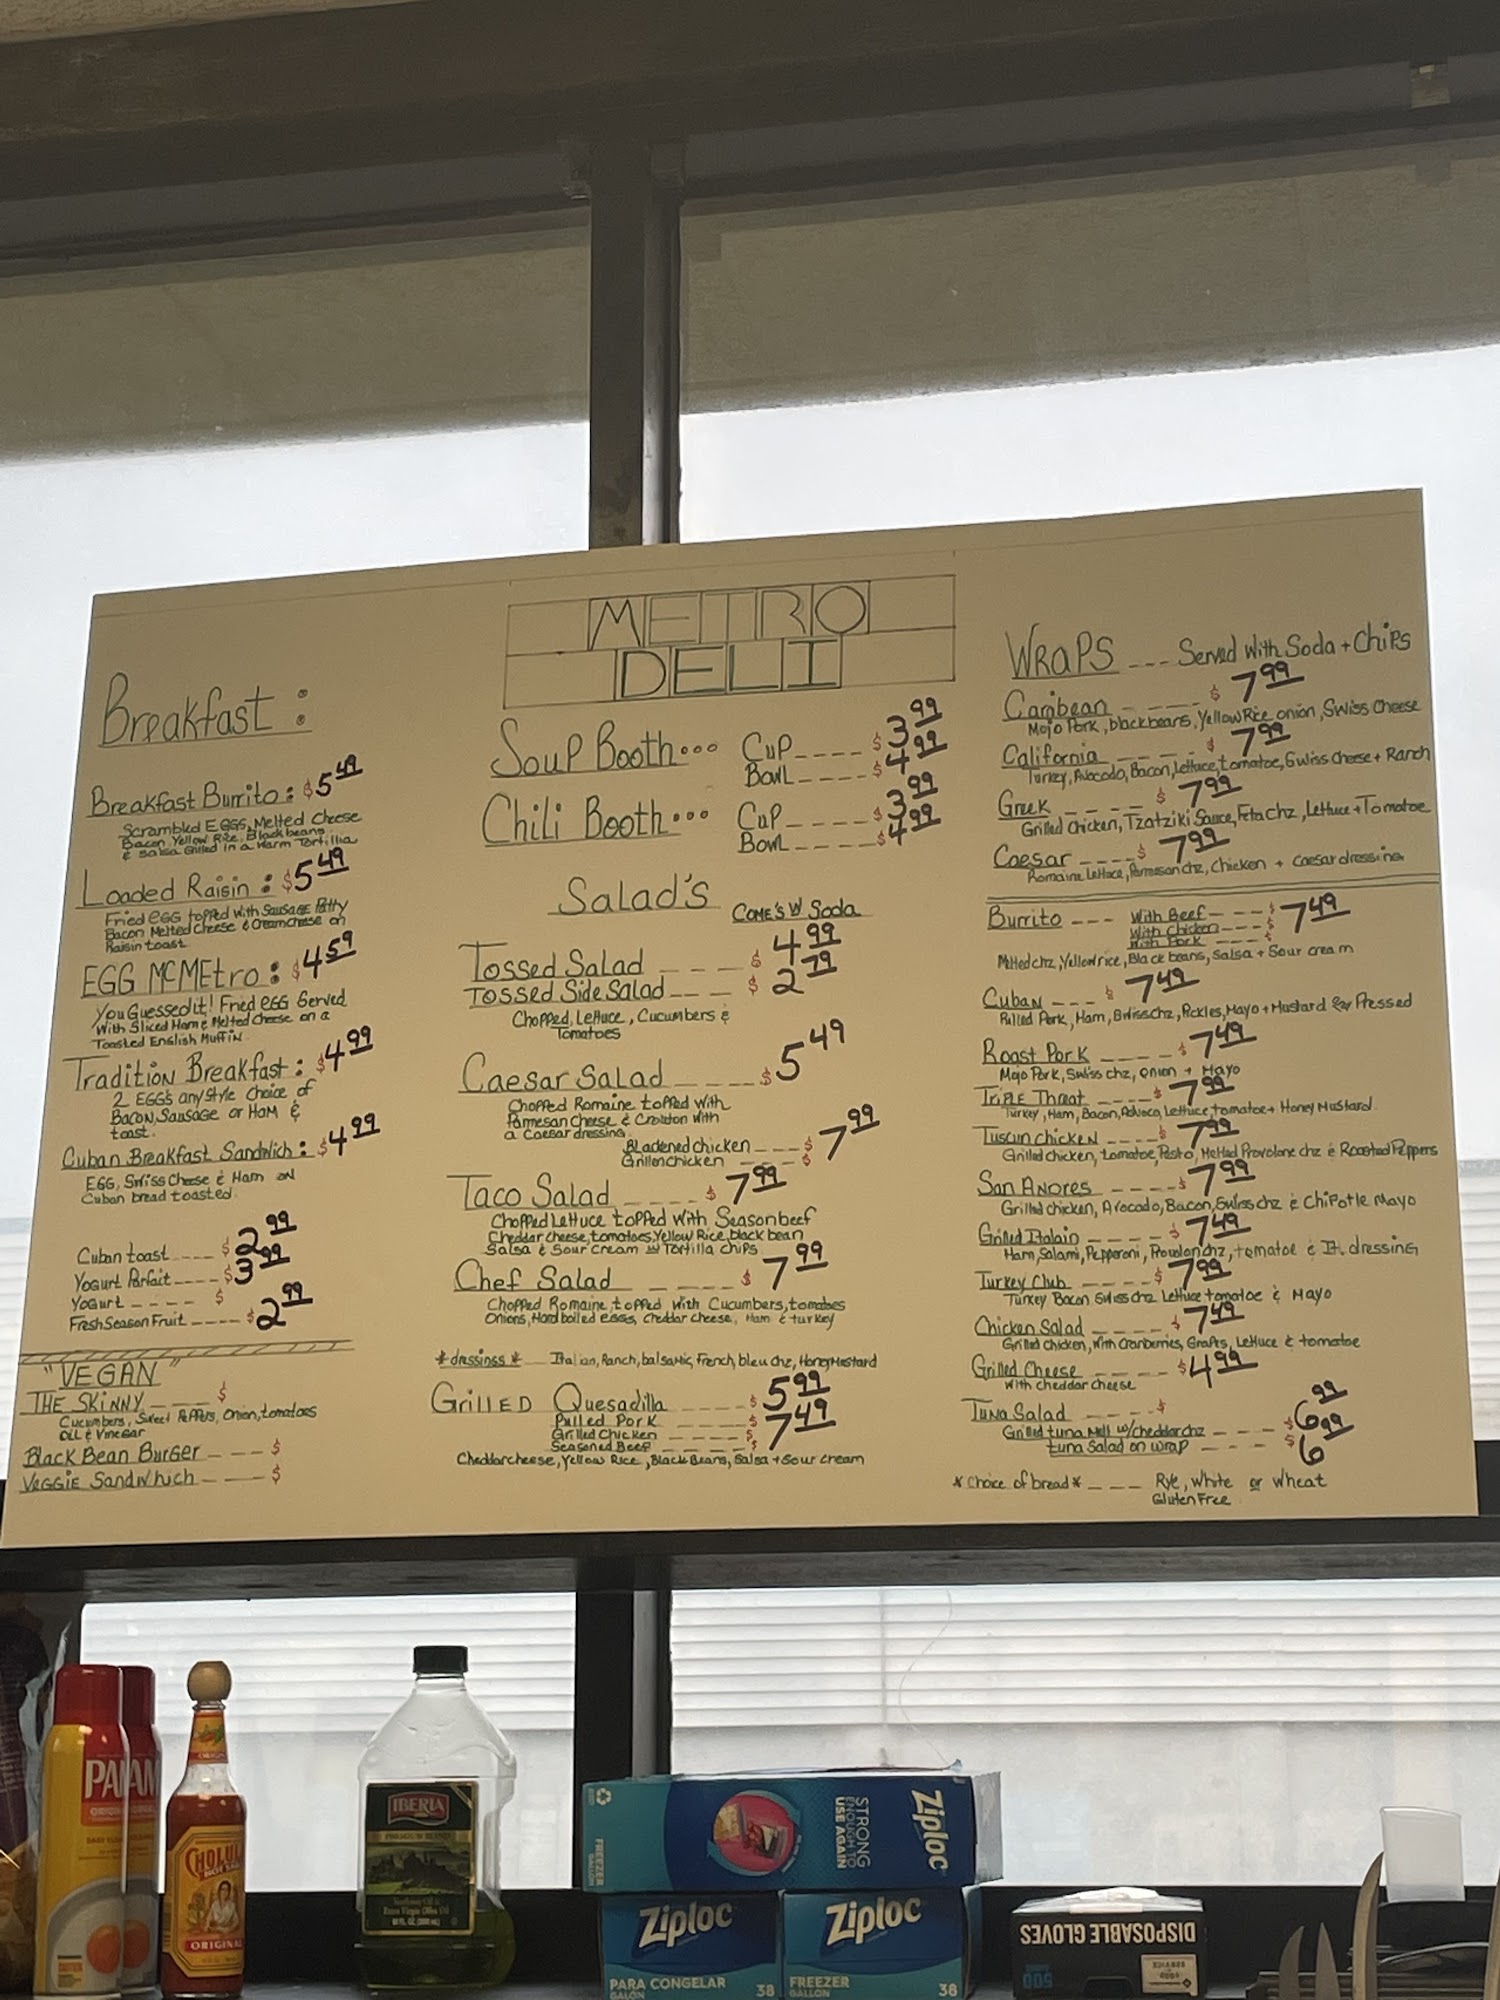 METRO
DELI
Breakfast :
Breakfast Burrito : $5 49
Scrambled EGGS, Melted Cheese
Bacon, Yellow Rice, Black beans
& Salsa Grilled in a Warm Tortillia
Loaded Raisin : $5 49
Fried EGG topped with Sausage Patty
Bacon Melted Cheese & Creamcheese on
Raisin toast
EGG MCMEtro : $4 59
You Guessed it! Fried EGG Served
With Sliced Ham & Melted Cheese on a
Toasted English Muffin.
Tradition Breakfast : $4 99
2 EGG's any Style Choice of
Bacon, Sausage or Ham &
toast.
Cuban Breakfast Sandwich : $4 99
EGG, Swiss Cheese & Ham on
Cuban bread toasted.
Cuban toast ---- $2 99
Yogurt Parfait ---- $3 99
Yogurt ---- $
Fresh Season Fruit ---- $2 99
"VEGAN"
THE SKINNY ---- $
Cucumbers, Sweet Peppers, Onion, tomatoes
Oil & Vinegar
Black Bean Burger --- $
VEGGIE Sandwhich ---- $
Soup Booth... Cup ---- $3 99
Bowl ---- $4 99
Chili Booth... Cup ---- $3 99
Bowl ---- $4 99
Salad's Come's W/ Soda
Tossed Salad ---- $4 99
Tossed Side Salad --- $2 79
Chopped, Lettuce, Cucumbers &
Tomatoes
Caesar Salad ---- $5 49
Chopped Romaine topped with
Parmesan Cheese & Crouton with
a Caesar dressing
Blackened chicken ---- $7 99
Grillen chicken ---- $
Taco Salad ---- $7 99
Chopped Lettuce topped with Season beef
Cheddar cheese, tomatoes, Yellow Rice, black bean
Salsa & Sour Cream W/ Tortilla chips
Chef Salad ---- $7 99
Chopped Romaine topped with Cucumbers, tomatoes
Onions, Hard boiled eggs, Cheddar Cheese, Ham & turkey
*dressings* Italian, Ranch, balsamic, French, bleu chz, Honey Mustard
Grilled Quesadilla ---- $5 99
Pulled Pork ---- $7 49
Grilled Chicken ---- $
Seasoned Beef ---- $
Cheddar cheese, Yellow Rice, Black Beans, Salsa + Sour cream
Wraps --- Served With Soda + Chips
Caribean ---- $7 99
Mojo Pork, black beans, Yellow Rice, onion, Swiss Cheese
California ---- $7 99
Turkey, Avocado, Bacon, Lettuce, tomatoe, Swiss Cheese + Ranch
Greek ---- $7 99
Grilled Chicken, Tzatziki Sauce, Feta Chz, Lettuce + Tomatoe
Caesar ---- $7 99
Romaine Lettuce, Parmesan chz, Chicken + Caesar dressing
Burrito --- With Beef --- $7 49
With Chicken --- $
With Pork --- $
Melted chz, Yellow rice, Black beans, Salsa + Sour cream
Cuban --- $7 49
Pulled Pork, Ham, Swiss chz, Pickles, Mayo + Mustard Pressed
Roast Pork ---- $7 49
Mojo Pork, Swiss chz, onion + Mayo
Triple Threat ---- $7 99
Turkey, Ham, Bacon, Advoco, Lettuce, tomatoe + Honey Mustard
Tuscun chicken ---- $7 99
Grilled chicken, tomatoe, Pesto, Melted Provolone chz & Roasted Peppers
San Andres ---- $7 99
Grilled chicken, Avocado, Bacon, Swiss chz & Chipotle Mayo
Grilled Italain ---- $7 49
Ham, Salami, Pepperoni, Provolon chz, tomatoe & It. dressing
Turkey Club ---- $7 99
Turkey Bacon Swiss chz Lettuce tomatoe & Mayo
Chicken Salad ---- $7 49
Grilled chicken, With Cranberries, Grapes, Lettuce & tomatoe
Grilled Cheese ---- $4 99
With cheddar cheese
Tuna Salad ---- $
Grilled tuna Melt w/cheddar chz ---- $6 99
tuna Salad on wrap ---- $6 99
*Choice of bread* --- Rye, White or Wheat
Gluten Free
PAM
PAM
ORIGINAL
CHOLULA
HOT SAUCE
ORIGINAL
IBERIA
Extra Virgin Olive Oil
Ziploc
STRONG
ENOUGH TO
USE AGAIN
FREEZER
GALLON
Ziploc
PARA CONGELAR
GALÓN
38
Ziploc
FREEZER
GALLON
38
DISPOSABLE GLOVES
500